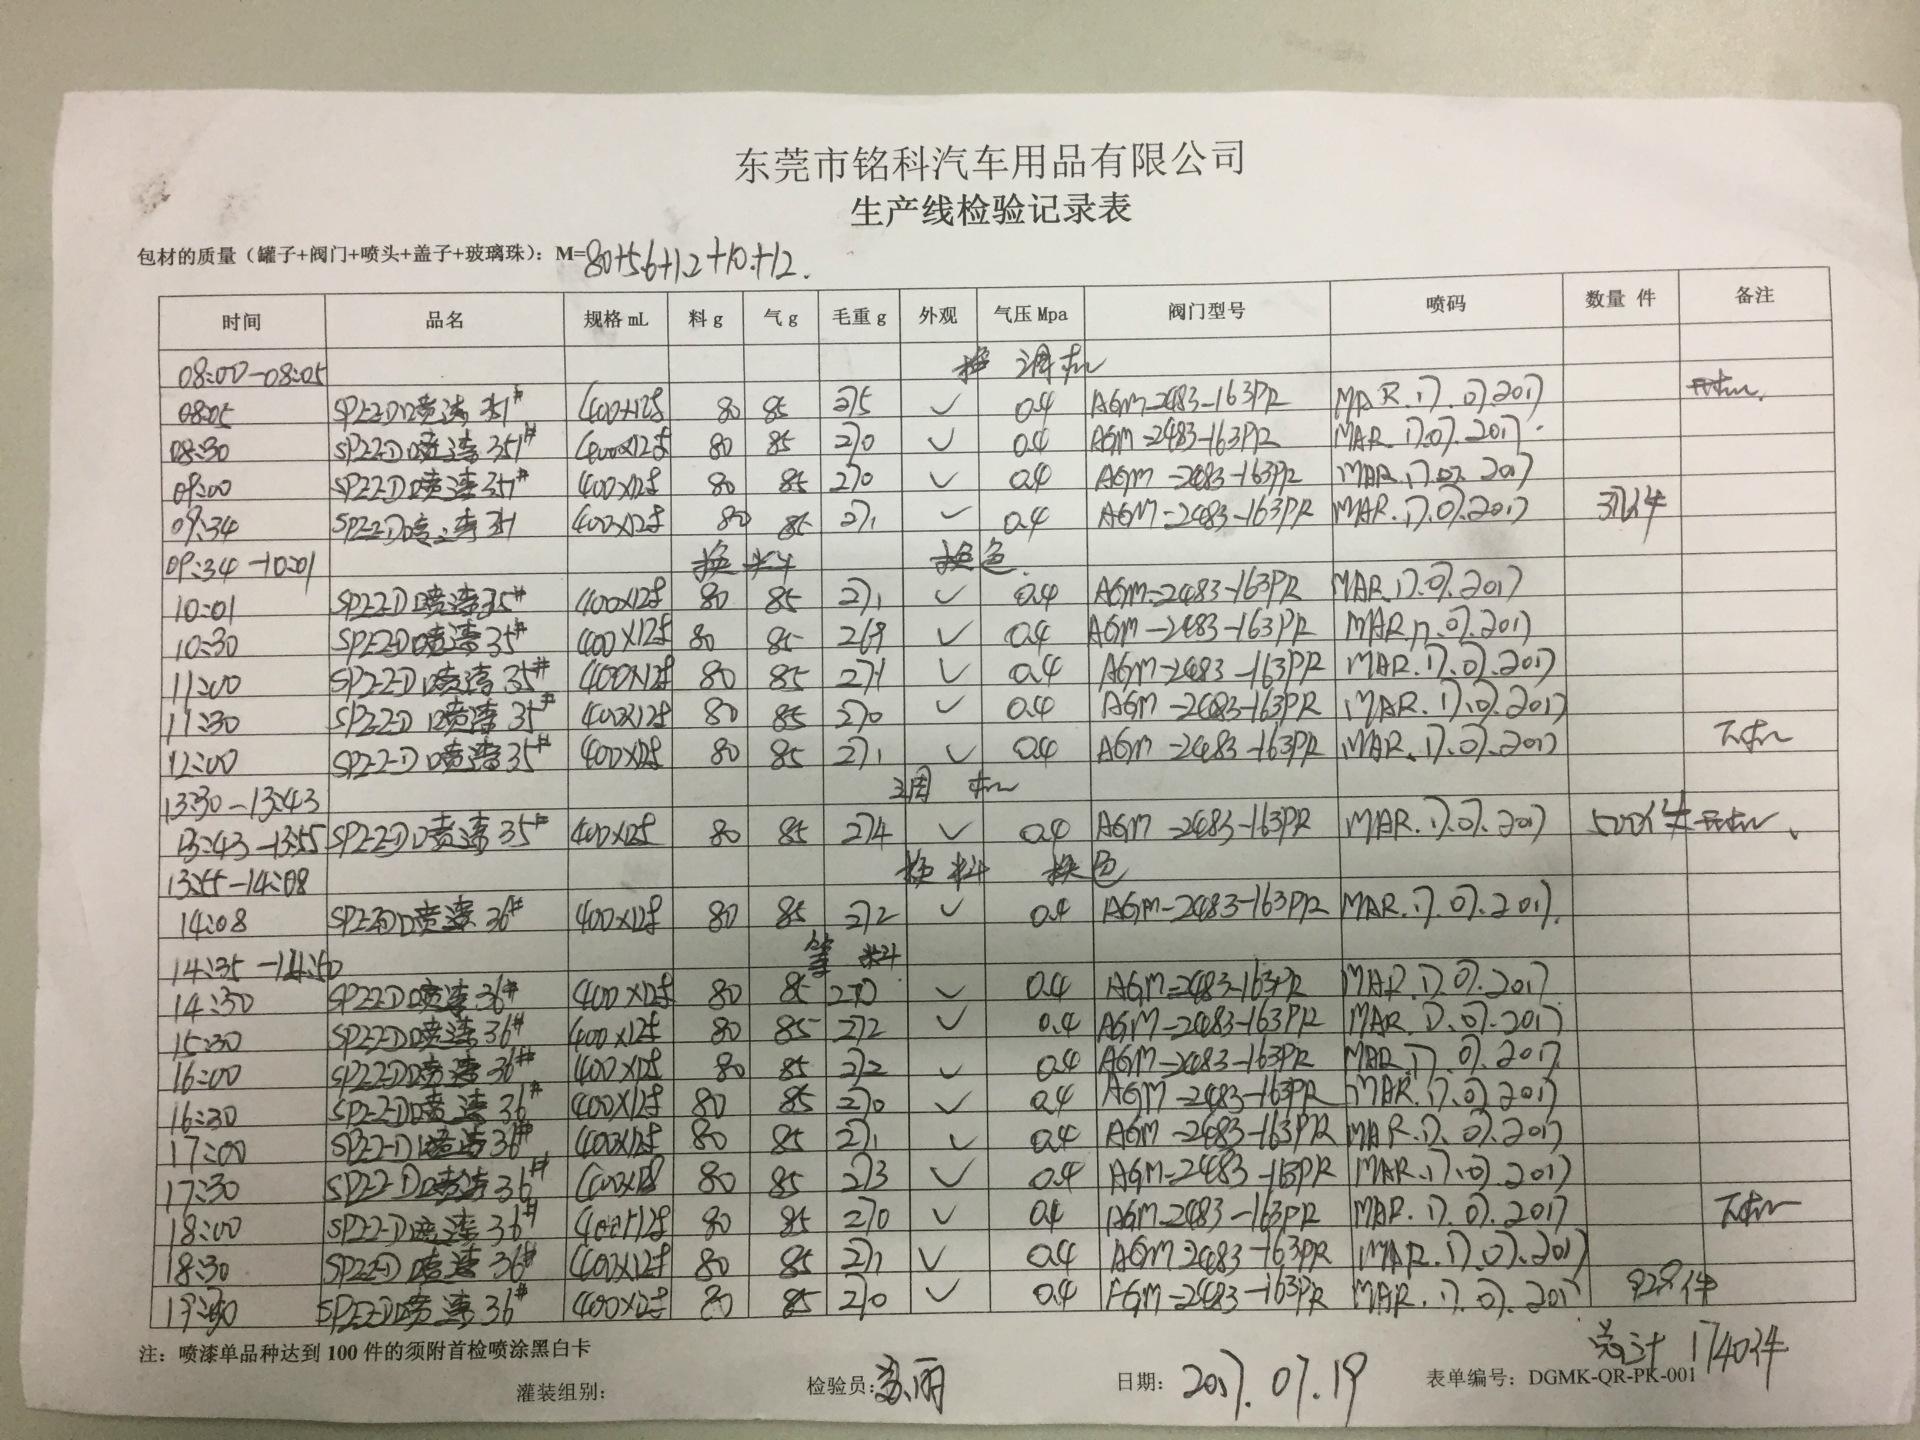 东莞市铭科汽车用品有限公司
生产线检验记录表
包材的质量（罐子+阀门+喷头+盖子+玻璃珠）：M=80+5.6+1.2+10.+12.
时间 品名 规格 mL 料 g 气 g 毛重 g 外观 气压 Mpa 阀门型号 喷码 数量 件 备注
08:00-08:05 调机
08:05 SP22-D喷漆351# 400×12 80 85 275 ✓ 0.4 AGM-2483-163PR MAR.17.07.2017 开机.
08:30 SP22-D喷漆351# 400×12 80 85 270 ✓ 0.4 AGM-2483-163PR MAR.17.07.2017.
09:00 SP22-D喷漆351# 400×12 80 85 270 ✓ 0.4 AGM-2483-163PR MAR.17.07.2017
09:34 SP22-D喷漆351 400×12 80 85 271 ✓ 0.4 AGM-2483-163PR MAR.17.07.2017 件
09:34-10:01 换料 换色
10:01 SP22-D喷漆35# 400×12 80 85 271 ✓ 0.4 AGM-2483-163PR MAR.17.07.2017
10:30 SP22-D喷漆35# 400×12 80 85 269 ✓ 0.4 AGM-2483-163PR MAR.17.07.2017
11:00 SP22-D喷漆35# 400×12 80 85 271 ✓ 0.4 AGM-2483-163PR MAR.17.07.2017
11:30 SP22-D喷漆35# 400×12 80 85 270 ✓ 0.4 AGM-2483-163PR MAR.17.07.2017
12:00 SP22-D喷漆35# 400×12 80 85 271 ✓ 0.4 AGM-2483-163PR MAR.17.07.2017 下机
13:30-13:43 调机
13:43-13:55 SP22-D喷漆35# 400×12 80 85 274 ✓ 0.4 AGM-2483-163PR MAR.17.07.2017 500件 开机、
13:55-14:08 换料 换色
14:08 SP22-D喷漆36# 400×12 80 85 272 ✓ 0.4 AGM-2483-163PR MAR.17.07.2017.
14:35-14:50 等料
14:50 SP22-D喷漆36# 400×12 80 85 270 ✓ 0.4 AGM-2483-163PR MAR.17.07.2017
15:30 SP22-D喷漆36# 400×12 80 85 272 ✓ 0.4 AGM-2483-163PR MAR.17.07.2017
16:00 SP22-D喷漆36# 400×12 80 85 272 ✓ 0.4 AGM-2483-163PR MAR.17.07.2017
16:30 SP22-D喷漆36# 400×12 80 85 270 ✓ 0.4 AGM-2483-163PR MAR.17.07.2017
17:00 SP22-D喷漆36# 400×12 80 85 271 ✓ 0.4 AGM-2483-163PR MAR.17.07.2017
17:30 SP22-D喷漆36# 400×12 80 85 273 ✓ 0.4 AGM-2483-163PR MAR.17.07.2017
18:00 SP22-D喷漆36# 400×12 80 85 270 ✓ 0.4 AGM-2483-163PR MAR.17.07.2017 下机
18:30 SP22-D喷漆36# 400×12 80 85 271 ✓ 0.4 AGM-2483-163PR MAR.17.07.2017
SP22-D喷漆36# 400×12 80 85 270 ✓ 0.4 AGM-2483-163PR MAR.17.07.2017 928件
总计 1740件
注：喷漆单品种达到 100 件的须附首检喷涂黑白卡
灌装组别： 检验员： 日期： 2017.07.19 表单编号：DGMK-QR-PK-001